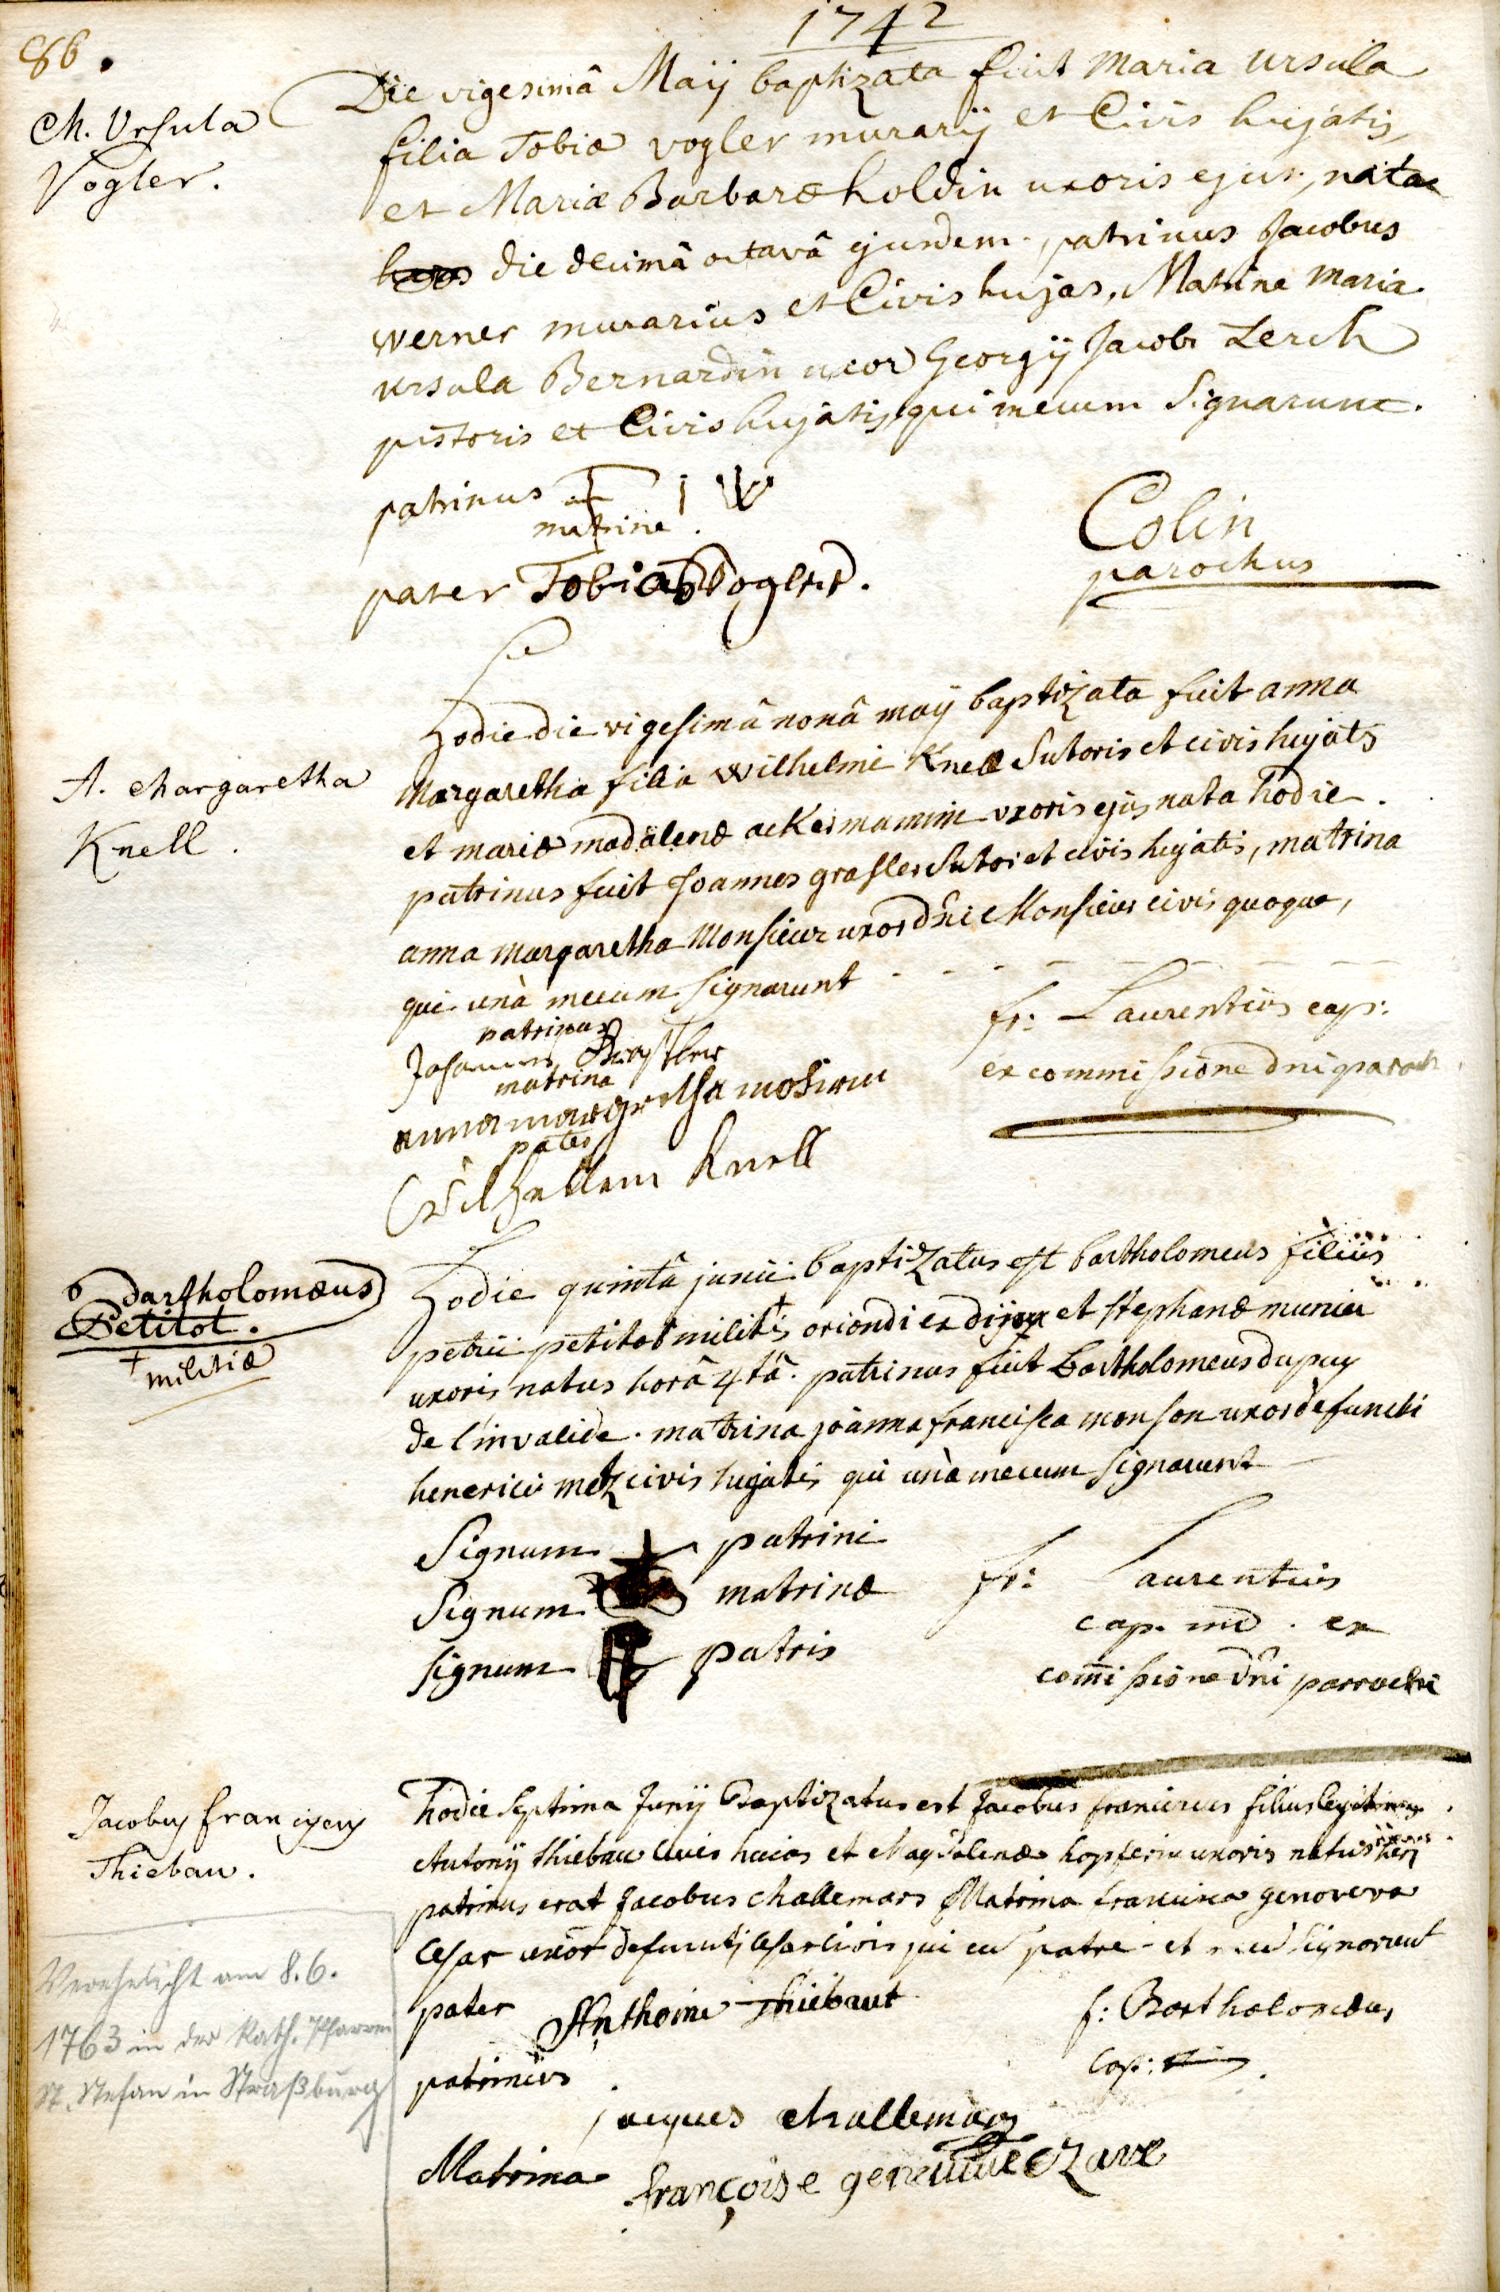 1742
86.
M. Ursula
Vogler.
Die vigesimâ Maij baptizata fuit Maria Ursula
filia Tobiæ Vogler murarij et Civis hujatis,
et Mariæ Barbaræ holdin uxoris ejus, nata
die decimâ octavâ ejusdem, patrinus Jacobus
Werner murarius et Civis hujas, Matrina Maria
Ursula Bernardin uxor Georgij Jacobi Lerch
pistoris et Civis hujatis, qui mecum signarunt.
patrinus I W
matrine
pater Tobias Vogler.
Colin
parochus
A. Margaretha
Knell.
Hodie die vigesimâ nonâ maij baptizata fuit anna
Margaretha filia Wilhelmi Knell Sutoris et civis hujatis
et mariæ madalenæ ackermannin uxoris ejus nata hodie.
patrinus fuit Joannes grasler Sutor et civis hujatis, matrina
anna margaretha Monsieur uxor dni Monsieur civis quoque,
qui unà mecum signarunt
patrinus
Johannes
matrina
anna margretha mosieur
pater
Wilhellem Knell
fr: Laurentius cap:
ex commissione dni paroch
Bartholomæus
Petitot.
+ militiæ
Hodie quintâ junii baptizatus est bartholomeus filius
petrii petitot militis + oriondi ex dijon et stephanæ munier
uxoris natus horâ 4tâ. patrinus fuit Bartholomeus dupuy
de l'invalide. matrina joanna francisca monson uxor defuncti
henerici metz civis hujatis qui unà mecum signarunt
Signum patrini
Signum matrinæ
signum patris
fr: Laurentius
cap. ind. ex
com̄issione dni parrochi
Jacobus franciscus
Thiebau.
hodie septima Junij Baptizatus est Jacobus franciscus filius legitimus
Antonij thiebau Civis huias et Magdalenæ hopferin uxoris natus heri
patrinus erat Jacobus challemars Matrina francisca genoveva
Cesar uxor defuncti Cesar Civis qui cu patre et signarunt
pater Anthoine Thiébaut
patrinus
jacques challemars
Matrina françoise geneuiue Czare
f: Bartholomæus
Cap:
Verehelicht am 8.6.
1763 in der Kath. Pfarrei
St. Stefan in Straßburg